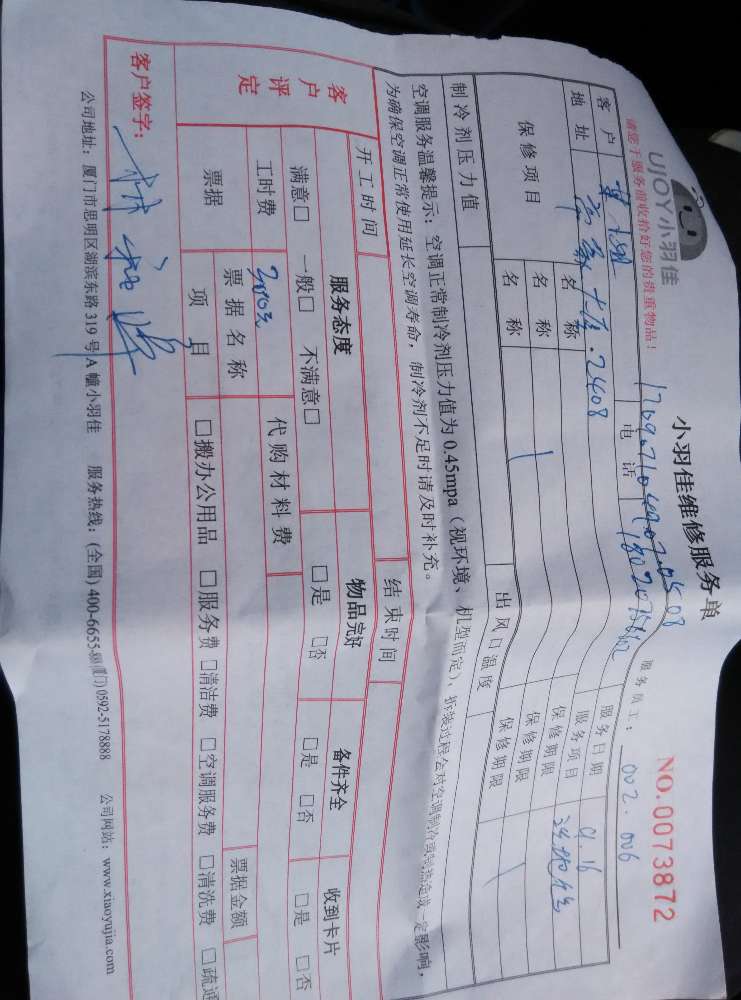 UJOY小羽佳
小羽佳维修服务单
NO.0073872
请您于服务前收拾好您的贵重物品！
服务员工：002.006
客户 电话 18020756612 服务日期 9.16
地址 2408 服务项目
保修项目 名称 保修期限
名称 保修期限
名称 保修期限
制冷剂压力值 出风口温度
空调服务温馨提示：空调正常制冷剂压力值为0.45mpa（视环境、机型而定），拆装过程会对空调制冷或制热造成一定影响，
为确保空调正常使用延长空调寿命，制冷剂不足时请及时补充。
开工时间 结束时间
客户评定 服务态度 物品完好 备件齐全 收到卡片
满意□ 一般□ 不满意□ □是 □否 □是 □否 □是 □否
工时费 代购材料费
票据 票据名称 票据金额
项目 □搬办公用品 □服务费 □清洁费 □空调服务费 □清洗费 □疏通
客户签字：
公司地址：厦门市思明区湖滨东路319号A幢小羽佳 服务热线：(全国)400-6655-888(厦门)0592-5178888 公司网站：www.xiaoyujia.com